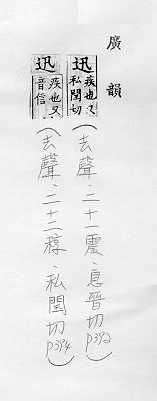 廣韻
迅 疾也又私閏切 (去聲.二十一震.息晉切 P392)
迅 疾也又音信 (去聲.二十二稕.私閏切 P394)